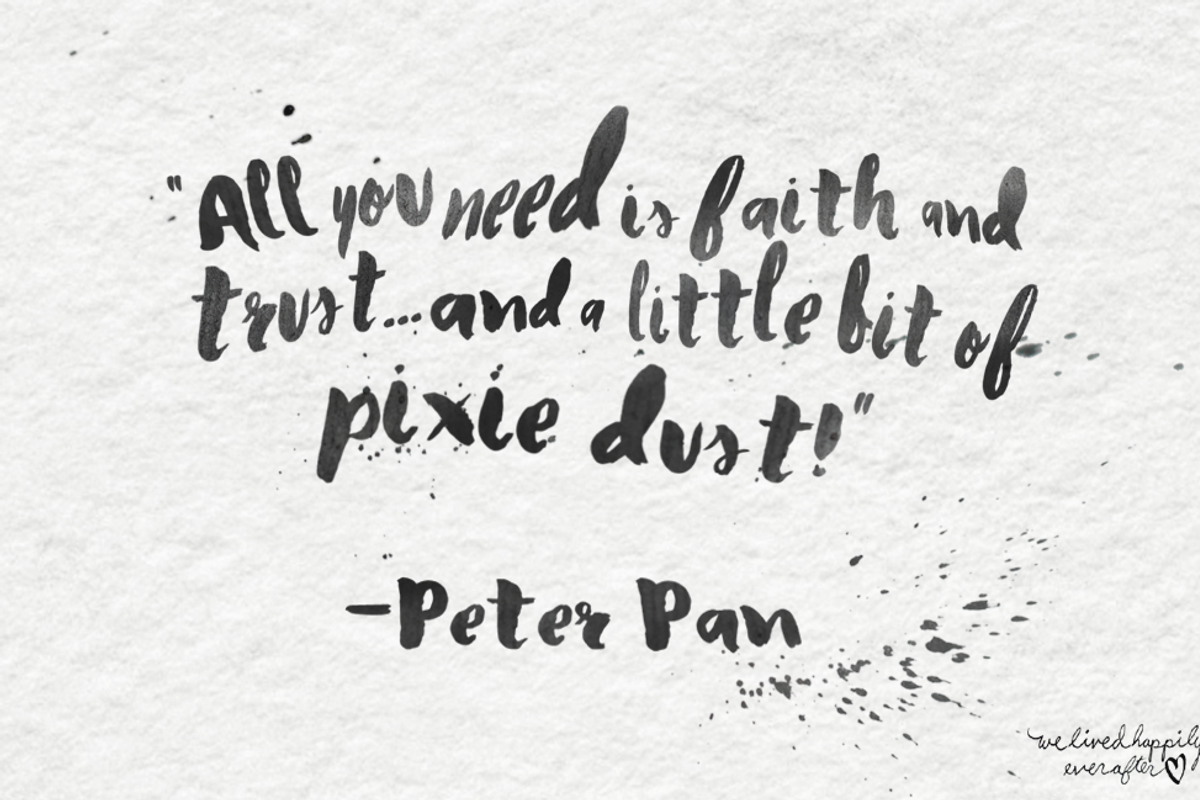 "All you need is faith and
trust...and a little bit of
pixie dust!"
-Peter Pan
we lived happily
ever after♡